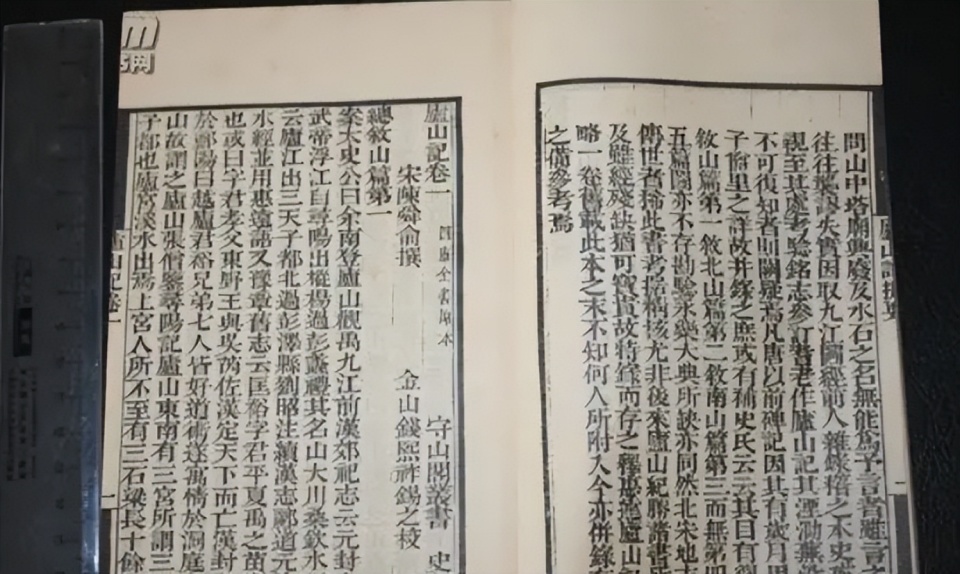 廬山記提要
問山中塔廟興廢及水石之名無能為予言者雖言之
往往襲訛失實因取九江圖經前人雜錄稽之本史或
親至其處考驗銘志參訂耆老作廬山記其湮泐無
不可復知者則闕疑焉凡唐以前碑記因其有歲月甲
子爵里之詳故并錄之庶或有補史氏云云其目有
敘山篇第一敘北山篇第二敘南山篇第三而無第四
五篇圖亦不存勘驗永樂大典所缺亦同然北宋地志
傳世者稀此書考據精核尤非後來廬山紀勝諸書所
及雖經殘缺猶可寶貴故特錄而存之釋惠遠廬山
略一卷舊載此本之末不知何人所附入今亦併錄
之備參考焉
廬山記卷一 四庫全書原本 守山閣叢書 史
宋陳舜俞撰 金山錢熙祚錫之校
總敘山篇第一
案太史公曰余南登廬山觀禹九江前漢郊祀志云元封
武帝浮江自尋陽出樅楊過彭蠡禮其名山大川桑欽水
云廬江出三天子都北過彭澤縣劉昭注續漢志酈道元
水經並用惠遠語又豫章舊志云匡裕字君平夏禹之苗
也或曰字君孝父東野王與吳芮佐漢定天下而亡漢封
於鄡陽曰越廬君裕兄弟七人皆好道術遂寓情於洞庭
山故謂之廬山張僧鑒尋陽記廬山東南有三宮所謂三
子都也廬宮溪水出焉上宮人所不至有三石梁長十餘
廬山記卷一
一